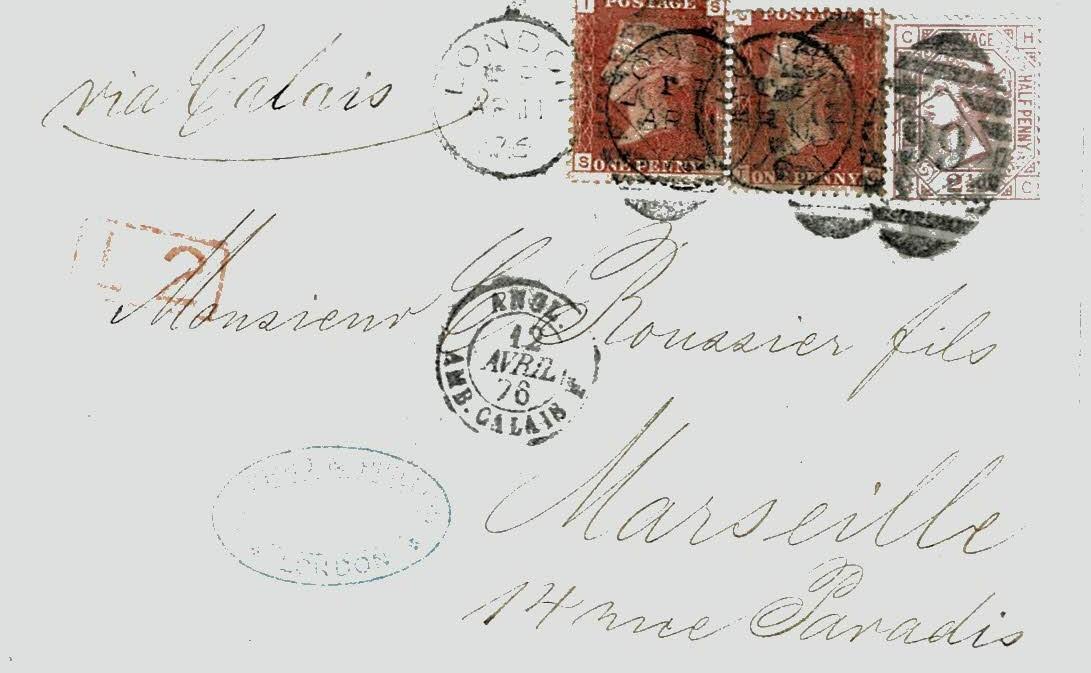 via Calais
LONDON
AP 11
76
POSTAGE
ONE PENNY
POSTAGE
ONE PENNY
C POSTAGE H
HALF PENNY
2½ C
L2
Monsieur C Roussier fils
ANGL.
12
AVRIL
76
AMB. CALAIS
Marseille
LONDON
14 rue Paradis